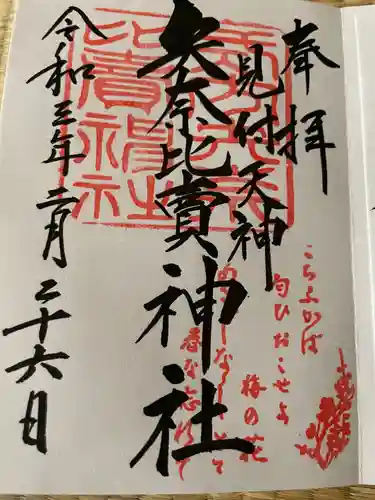 奉拝
見付天神
矢奈比賣神社
令和三年二月二十六日
こちふかば
匂ひおこせよ
梅の花
あるじなしとて
春な忘れそ